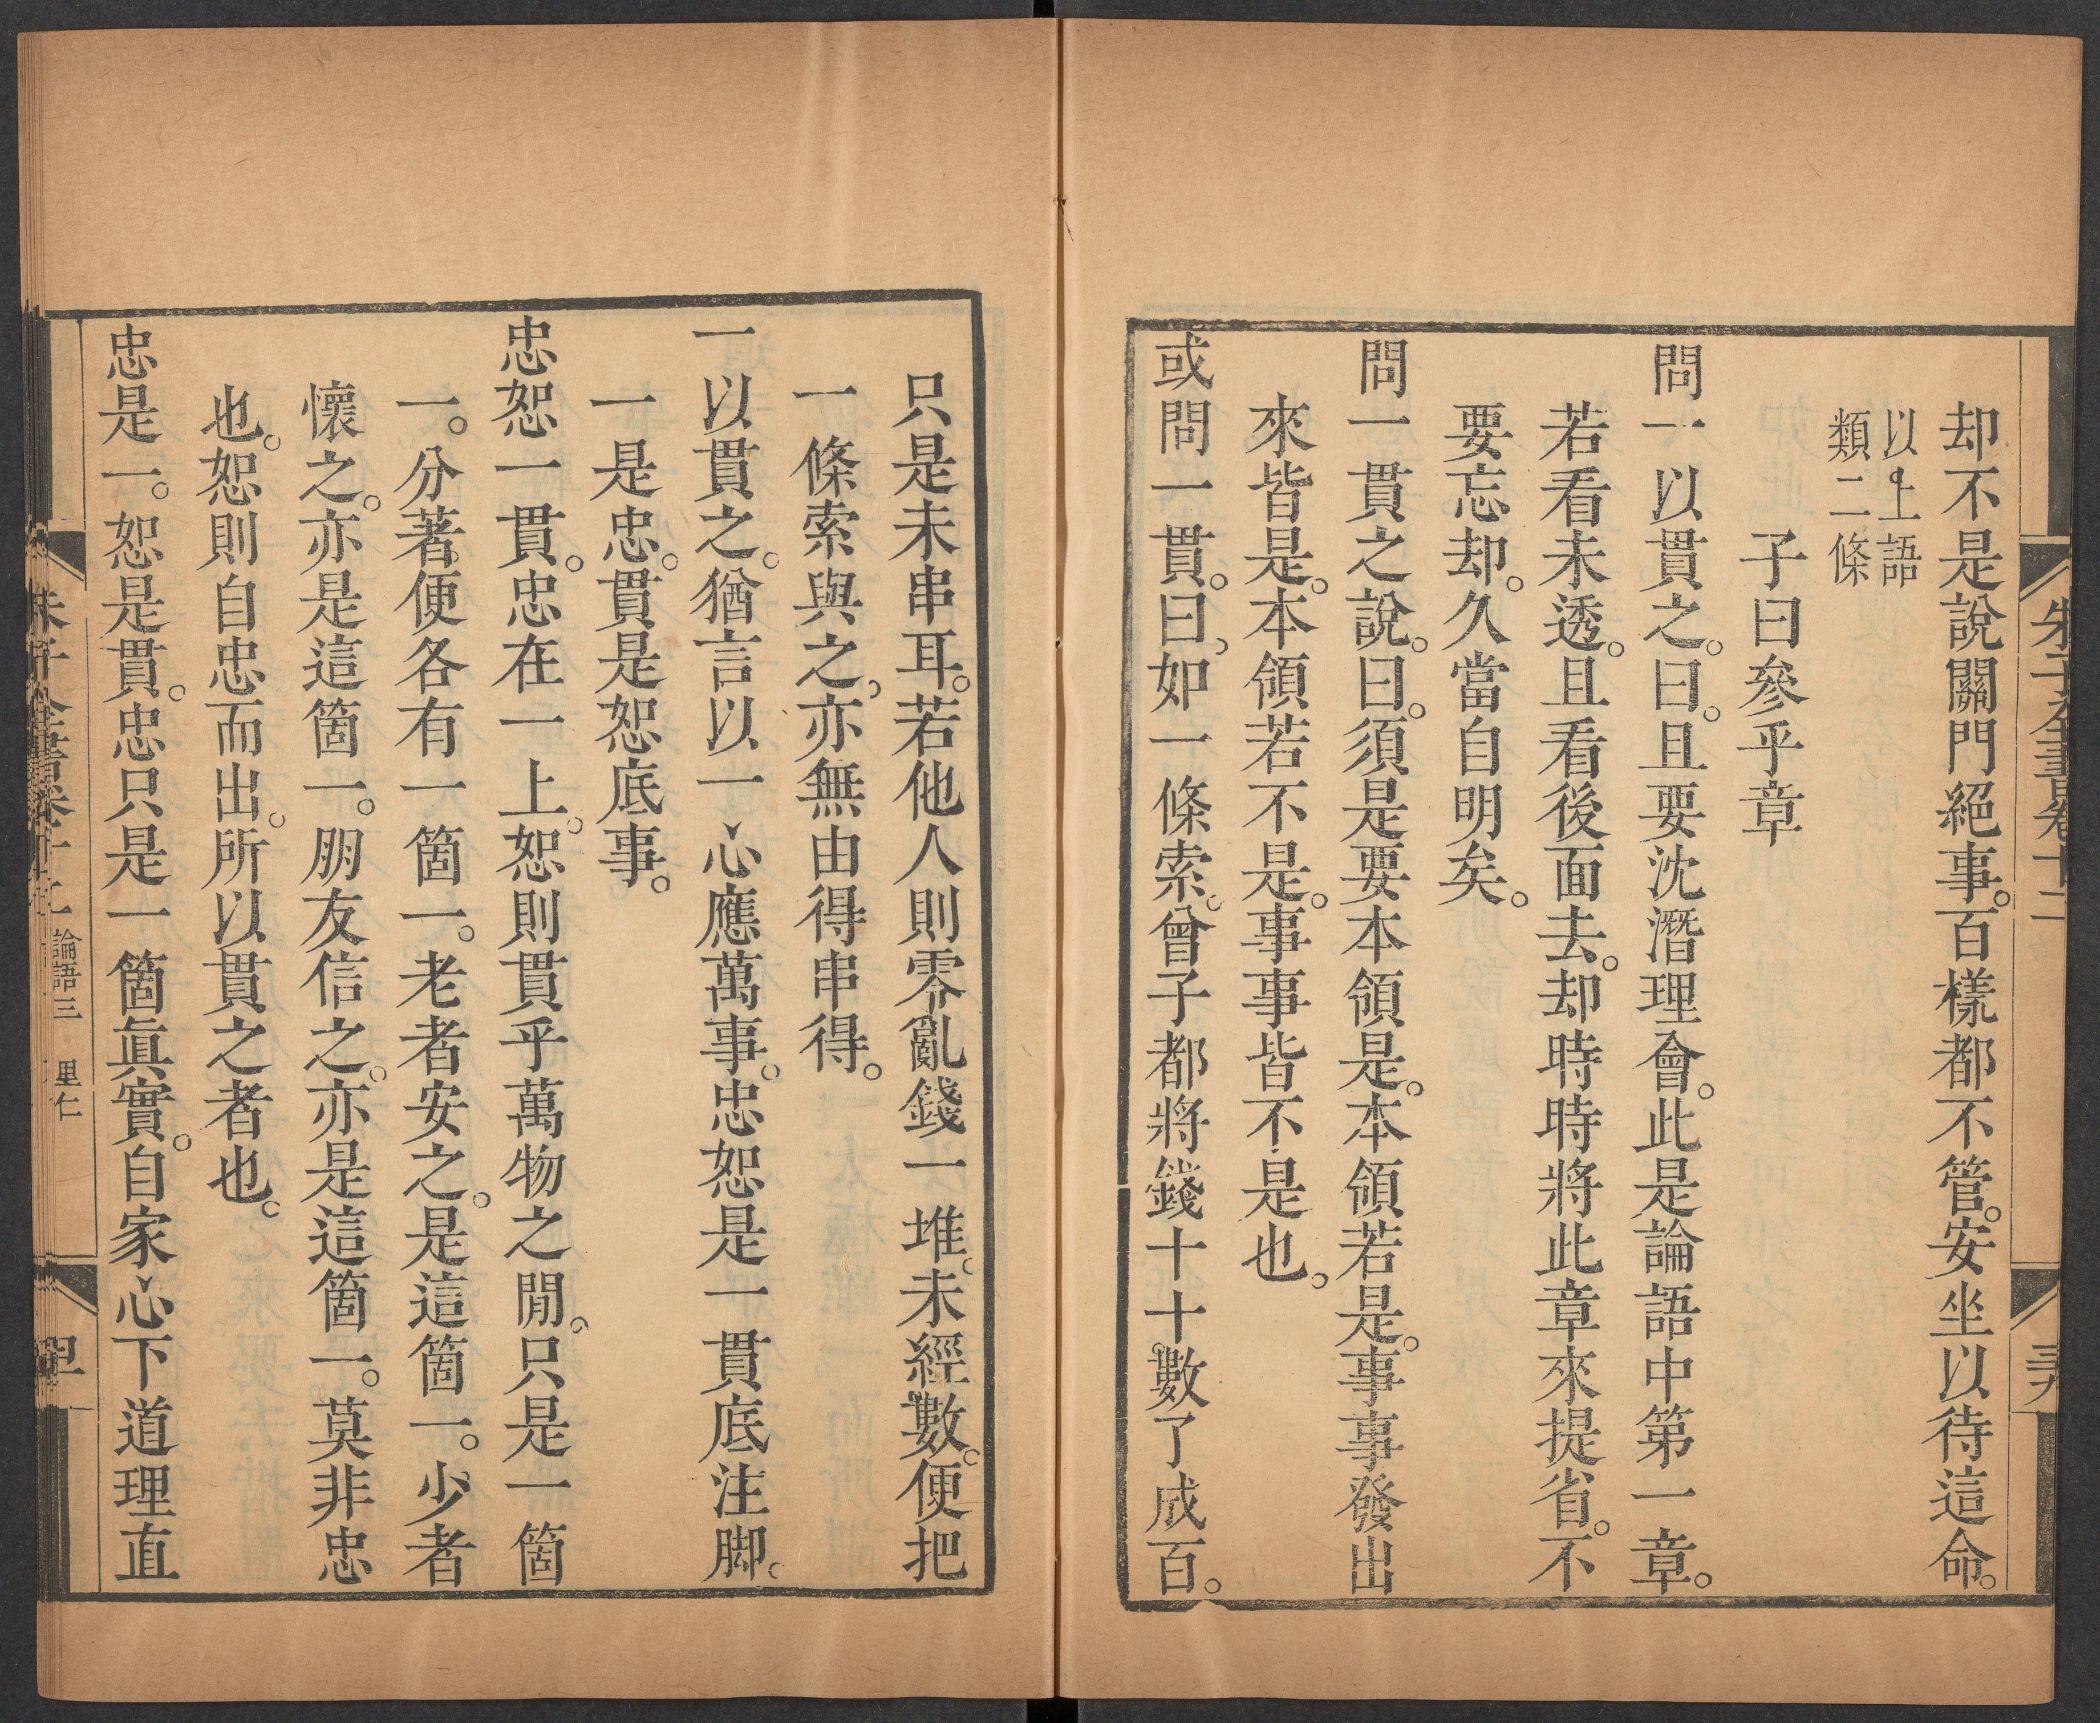 朱子全書卷十二
却不是說關門絕事。百樣都不管。安坐以待這命。
以上語
類二條
子曰參乎章
問一以貫之。曰。且要沈潛理會。此是論語中第一章。
若看未透。且看後面去。却時時將此章來提省。不
要忘却。久當自明矣。
問一貫之說。曰。須是要本領是。本領若是。事事發出
來皆是。本領若不是。事事皆不是也。
或問一貫。曰。如一條索。曾子都將錢十十數了成百。
只是未串耳。若他人則零亂錢一堆。未經數。便把
一條索與之。亦無由得串得。
一以貫之。猶言以一心應萬事。忠恕是一貫底注脚。
一是忠。貫是恕底事。
忠恕一貫。忠在一上。恕則貫乎萬物之間。只是一箇
一。分著便各有一箇一。老者安之。是這箇一。少者
懷之。亦是這箇一。朋友信之。亦是這箇一。莫非忠
也。恕則自忠而出。所以貫之者也。
忠是一。恕是貫。忠只是一箇眞實。自家心下道理直
論語三 里仁